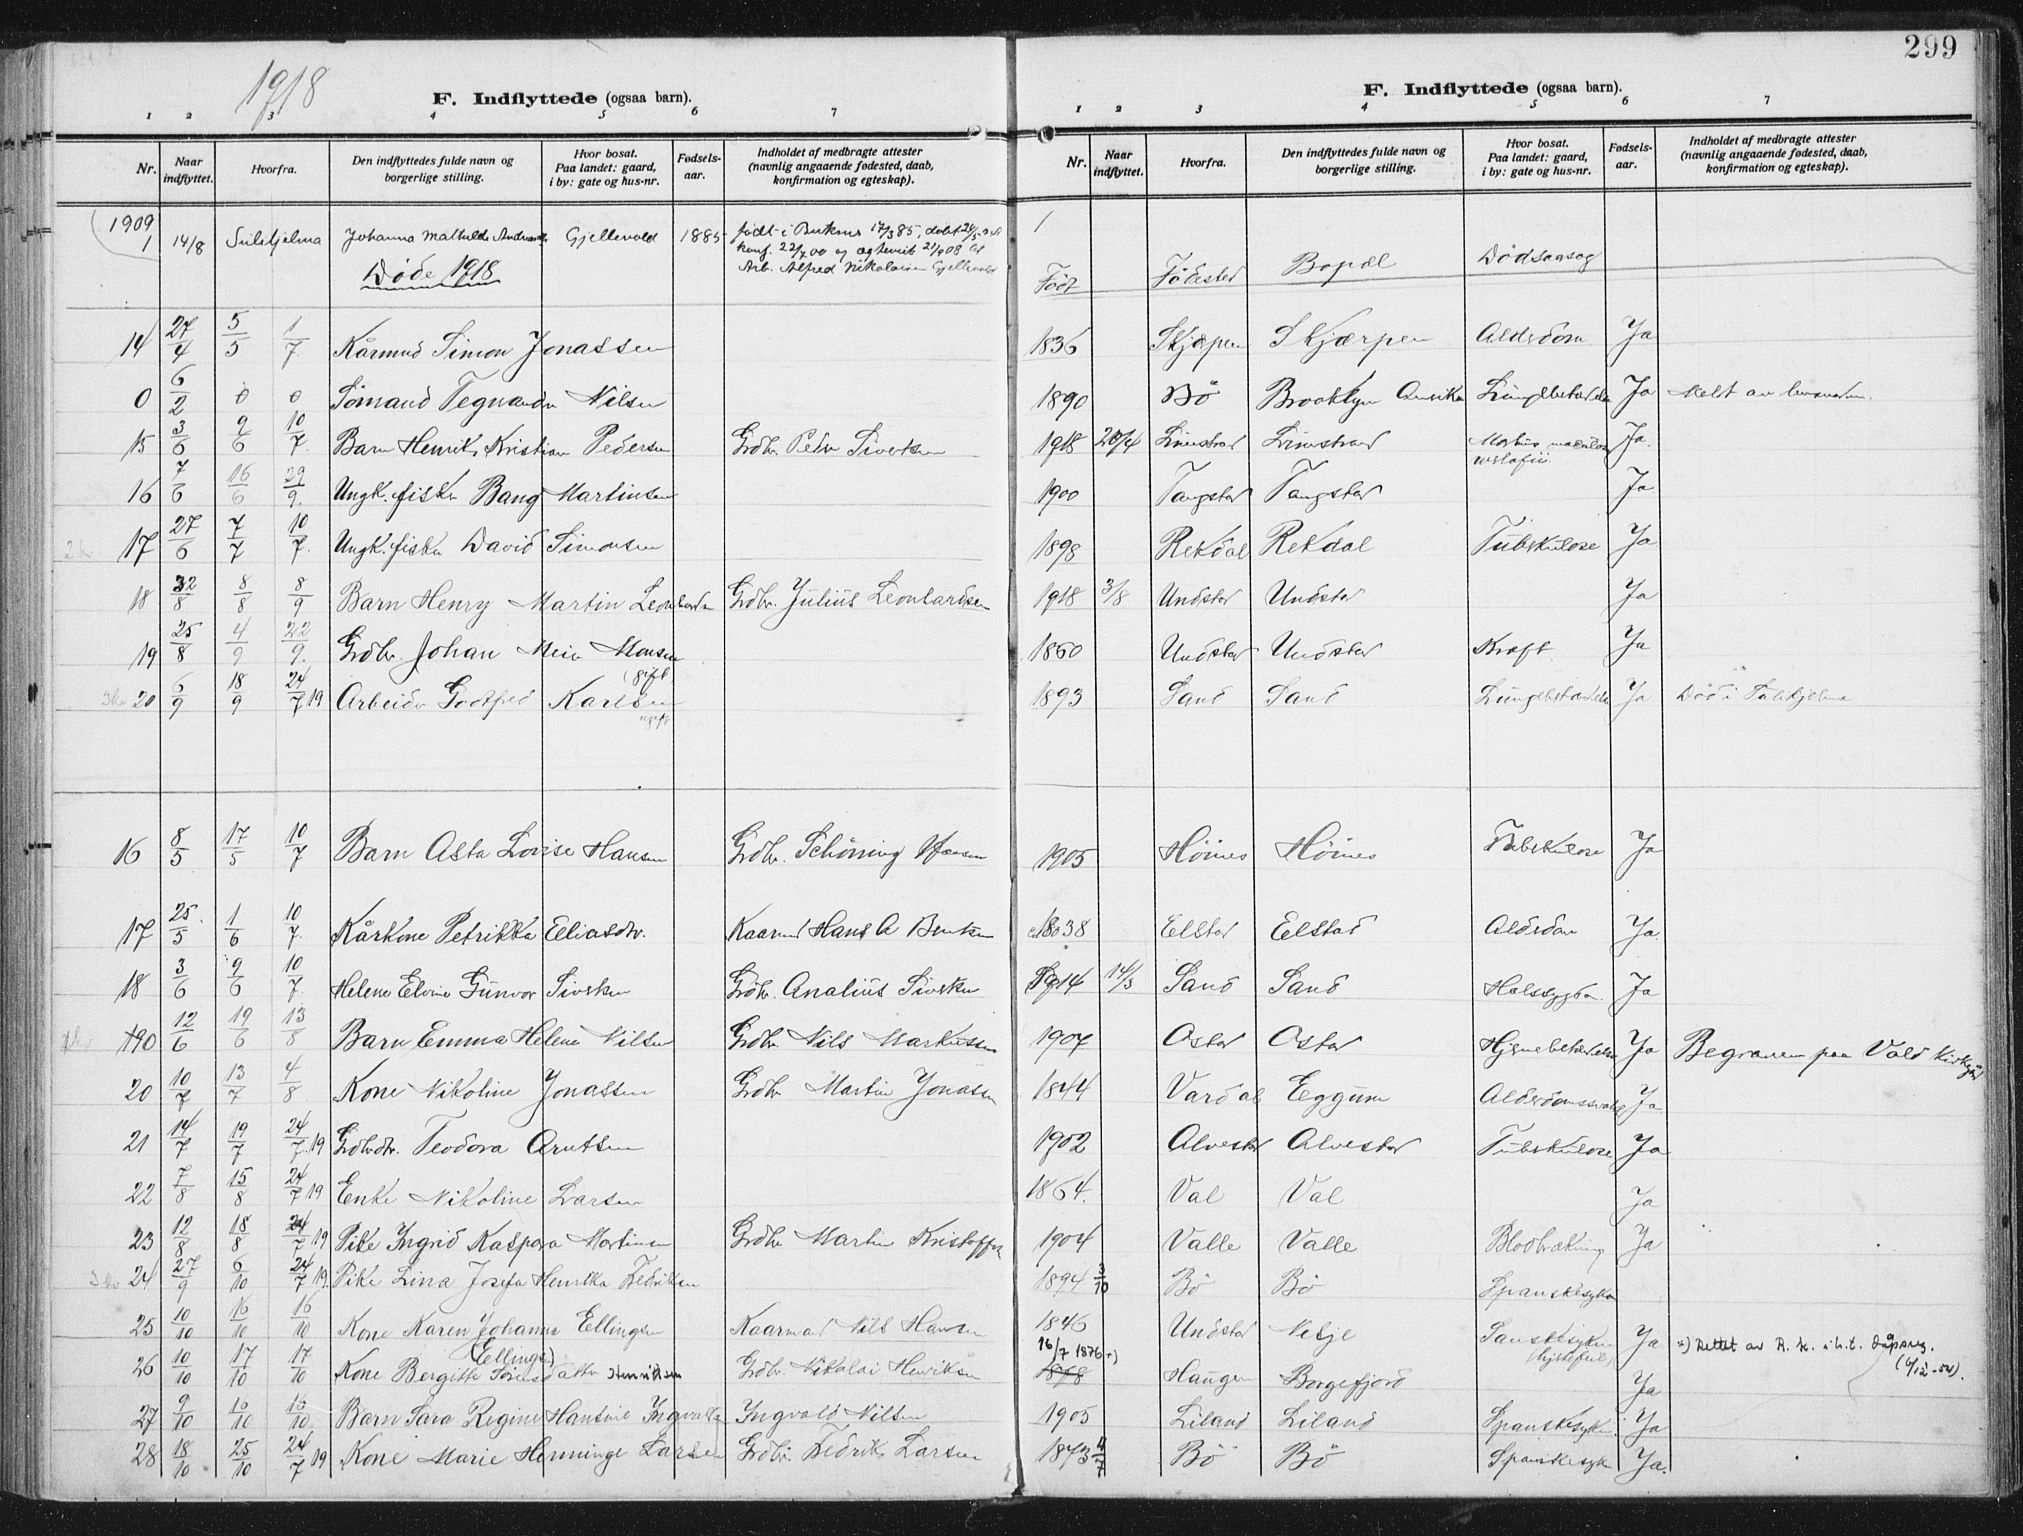 299
1918
F. Indflyttede (ogsaa barn).
F. Indflyttede (ogsaa barn).
1 2 3 4 5 6 7
1 2 3 4 5 6 7
Nr. Naar indflyttet. Hvorfra. Den indflyttedes fulde navn og borgerlige stilling. Hvor bosat. Paa landet: gaard, i by: gate og hus-nr. Fødsels-aar. Indholdet af medbragte attester (navnlig angaaende fødested, daab, konfirmation og egteskap).
Nr. Naar indflyttet. Hvorfra. Den indflyttedes fulde navn og borgerlige stilling. Hvor bosat. Paa landet: gaard, i by: gate og hus-nr. Fødsels-aar. Indholdet af medbragte attester (navnlig angaaende fødested, daab, konfirmation og egteskap).
1909
1 14/8 Sulitjelma Johanna Mathilde Gjellevold 1885 født i Buksnes 17/3 85, døbt
konf. 22/7 00 og egteviet 21/ 08 til
Arb. Alfred Nikolaisen
Døde 1918
Født Fødested Bopæl Dødsaarsag
14 27/4 5/5 1/7 Kårmand Simon Jonassen 1836 Skjærpen Skjærpen Alderdom Ja
0 6/2 0 0 Sømand Tegnander Nilsen 1890 Bö Brooklyn Amerika Ja
15 3/6 9/6 10/7 Barn Henrik Kristian Pedersen Grdbr. Peder Sivertsen 1918 20/4 Limstrand Limstrand Ja
16 7/6 16/6 29/9 Ungk. fisker Bang Martinsen 1900 Tangstad Tangstad Ja
17 27/6 7/7 10/7 Ungk. fisker David Simonsen 1898 Rekdal Rekdal Tuberkulose Ja
18 8/8 8/9 Barn Henry Martin Leonhardsen Grdbr. Julius Leonhardsen 1918 3/8 Unstad Unstad Ja
19 25/8 4/9 22/9 Grdbr. Johan Meier Monsen (gift) 1860 Unstad Unstad Kræft Ja
20 6/9 18/9 24/7 19 Arbeider Godtfred Karlsen ugift 1893 Sand Sand Lungebetændelse Ja Död i Sulitjelma
16 8/5 17/5 10/7 Barn Asta Lovise Hansen Grdbr. Schöning Hansen 1905 Höines Höines Tuberkulose Ja
17 25/5 1/6 10/7 Kårkone Petrikka Eliasdtr. Kaarmand Hans A Bentsen 1838 Eltstad Eltstad Alderdom Ja
18 3/6 9/6 10/7 Helene Elvine Gunvor Sivertsen Grdbr. Analius Sivertsen 1914 14/3 Sand Sand Halssygdom Ja
190 12/6 19/6 13/8 Barn Emma Helene Nilsen Grdbr. Nils Markussen 1907 Ostad Ostad Hjernebetændelse Ja Begraven paa Vold Kirkegård
20 10/7 13/7 4/8 Kone Nikoline Jonassen Grdbr. Martin Jonassen 1844 Vardal Eggum Alderdomssvakhed Ja
21 14/7 19/7 24/7 19 Grdbrdtr. Teodora Arntsen 1902 Alvestad Alvestad Tuberkulose Ja
22 7/8 15/8 24/7 19 Enke Nikoline Larsen 1864 Val Val Ja
23 12/8 18/8 24/7 19 Pike Ingrid Kaspara Martinsen Grdbr Martin Kristoffersen 1904 Valle Valle Blodbrækning Ja
24 27/9 6/10 24/7 19 Pike Lina Josefa Henrikka Fredriksen 1894 3/10 Bö Bö Spanskesyken
25 10/10 16/10 16/10 Kone Karen Johanne Ellingsen Kaarmand Nils Hansen 1846 Unstad Nesje Spanskesyken Ja
26 10/10 17/10 17/10 Kone Bergitte Sörensdatter (Ellingsen) Henriksen Grdbr. Nikolai Henriksen 16/7 1876 *) 1878 Haugen Borgefjord Ja *) Rettet av R. K. i h.t. dåpsreg. (4/12-54).
27 9/10 16/10 16/10 Barn Sara Regine Hansine Ingvald Nilsen 1905 Liland Liland Spanskesyken Ja
28 18/10 25/10 24/7 19 Kone Marie Henninge Larsen Grdbr. Fedrik Larsen 1873 4/7 Bö Bö Spanskesyken Ja.